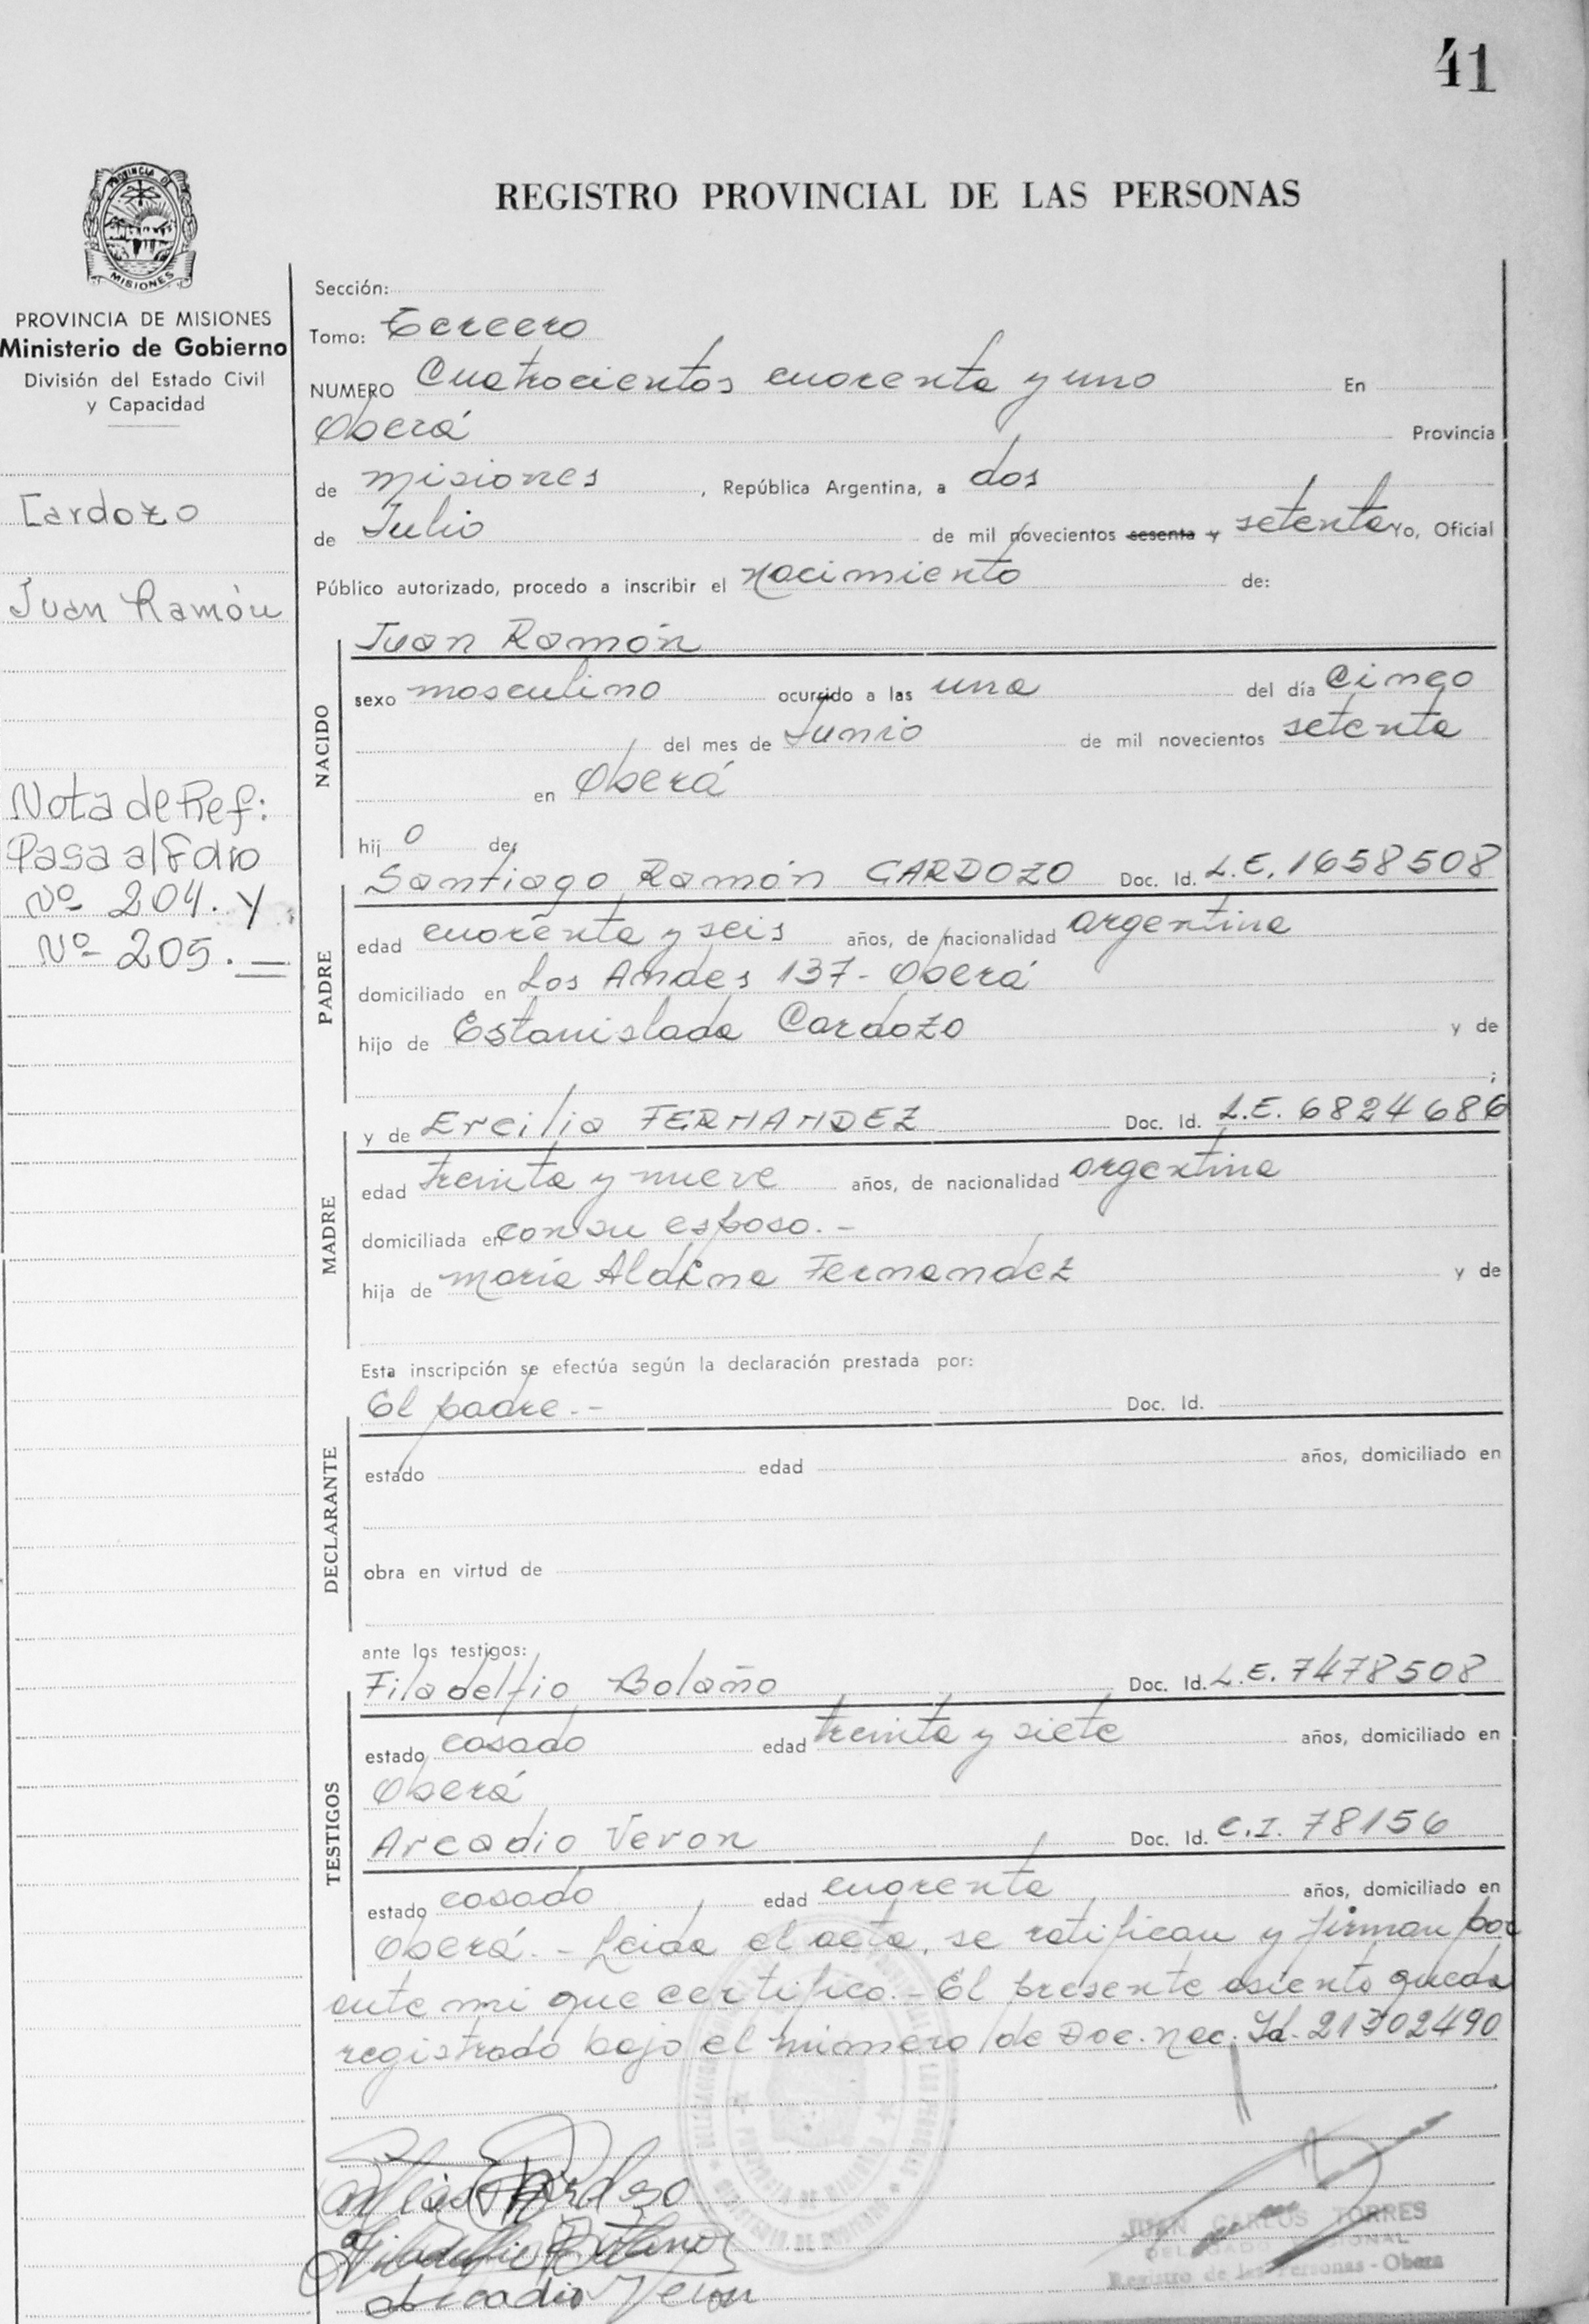 41
PROVINCIA DE
MISIONES
REGISTRO PROVINCIAL DE LAS PERSONAS
PROVINCIA DE MISIONES
Ministerio de Gobierno
División del Estado Civil
y Capacidad
Cardozo
Juan Ramón
Nota de Ref:
Pasa al Folio
Nº 204. y
Nº 205.—
Sección:
Tomo: Tercero
NUMERO Cuatrocientos cuarenta y uno En
Oberá Provincia
de Misiones , República Argentina, a dos
de Julio de mil novecientos sesenta y setenta Yo, Oficial
Público autorizado, procedo a inscribir el nacimiento de:
Juan Ramón
NACIDO
sexo masculino ocurrido a las una del día Cinco
del mes de Junio de mil novecientos setenta
en Oberá
hij o de:
Santiago Ramón CARDOZO Doc. Id. L.E. 1658508
PADRE
edad cuarenta y seis años, de nacionalidad argentina
domiciliado en Los Andes 137 - Oberá
hijo de Estanislada Cardozo y de
;
y de Ercilia FERNANDEZ Doc. Id. L.E. 6824686
MADRE
edad treinta y nueve años, de nacionalidad argentina
domiciliada en con su esposo.-
hija de María Aldina Fernandez y de
Esta inscripción se efectúa según la declaración prestada por:
El padre.- Doc. Id.
DECLARANTE
estado edad años, domiciliado en
obra en virtud de
ante los testigos:
Filadelfio Bolaño Doc. Id. L.E. 7478508
TESTIGOS
estado casado edad treinta y siete años, domiciliado en
Oberá
Arcadio Veron Doc. Id. C.I. 78156
estado casado edad cuarenta años, domiciliado en
Oberá.- Leida el acta, se ratifican y firman por
ante mi que certifico.- El presente asiento queda
registrado bajo el número de Doc. Nac. Id. 21302490
JUAN CARLOS TORRES
Registro de las Personas - Obera